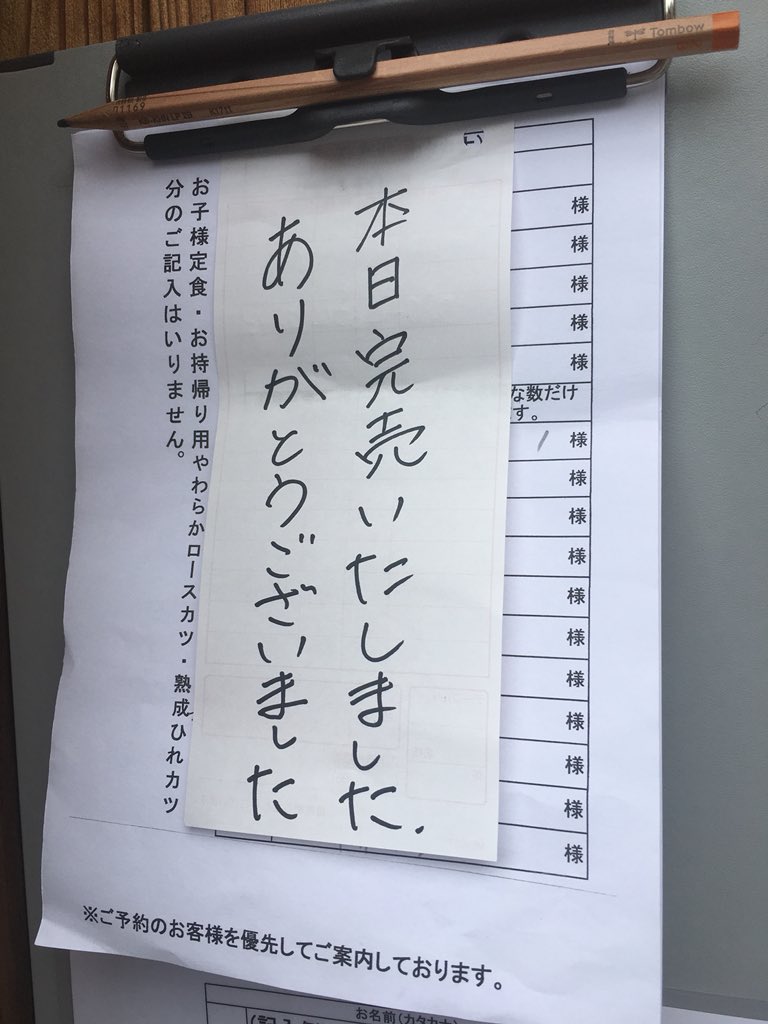 Tombow
様
様
様
様
様
な数だけ
す。
様
様
様
様
様
様
様
様
様
様
様
本日完売いたしました.
ありがとうございました
お子様定食・お持帰り用やわらかロースカツ・熟成ひれカツ
分のご記入はいりません。
※ご予約のお客様を優先してご案内しております。
お名前(カタカナ)